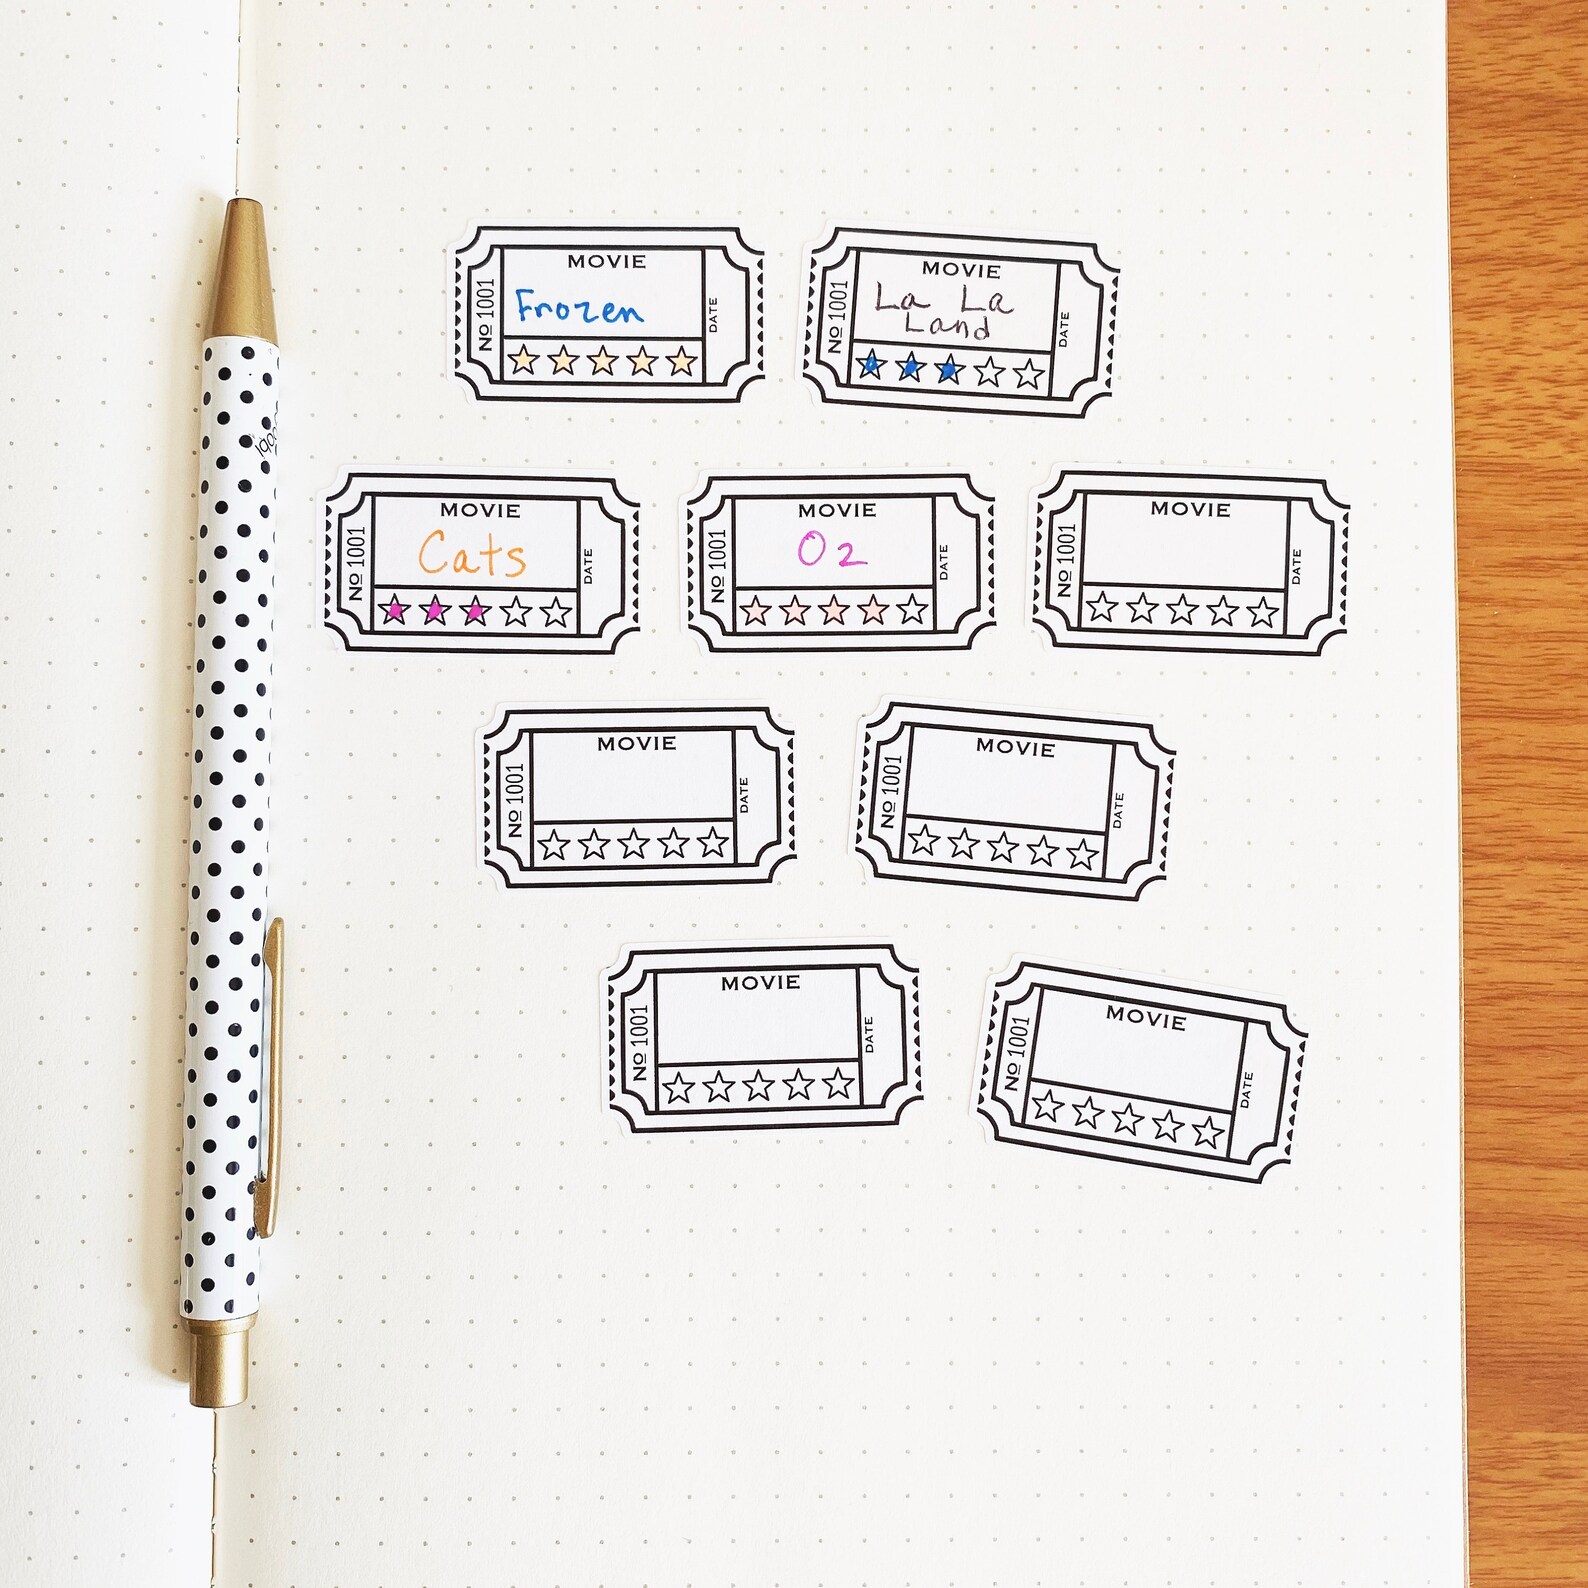 MOVIE
Frozen
No 1001
DATE
MOVIE
La La
Land
No 1001
DATE
MOVIE
Cats
No 1001
DATE
MOVIE
Oz
No 1001
DATE
MOVIE
No 1001
DATE
MOVIE
No 1001
DATE
MOVIE
No 1001
DATE
MOVIE
No 1001
DATE
MOVIE
No 1001
DATE